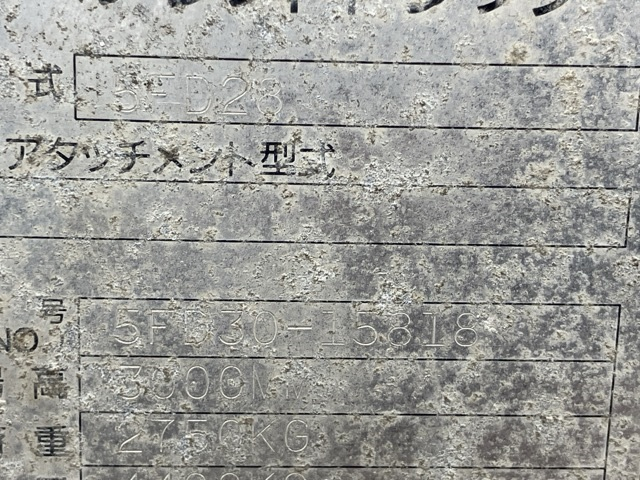 式 5FD28
アタッチメント型式
号
NO. 5FD30-15818
高 3000MM
重 2750KG